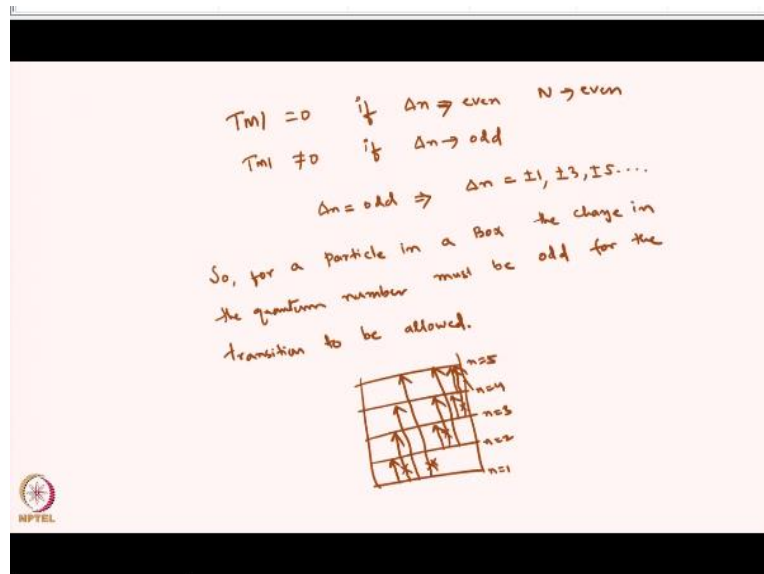 TM1 = 0 if Δn ⇒ even N → even
TM1 ≠ 0 if Δn → odd
Δn = odd ⇒ Δn = ±1, ±3, ±5....
So, for a particle in a Box the change in
the quantum number must be odd for the
transition to be allowed.
n=5
n=4
n=3
n=2
n=1
NPTEL